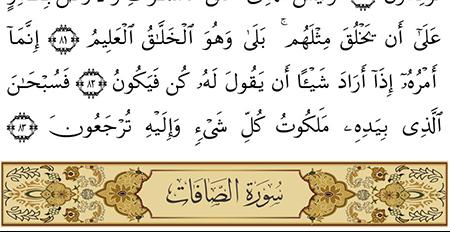 عَلَىٰٓ أَن يَخْلُقَ مِثْلَهُم ۚ بَلَىٰ وَهُوَ الْخَلَّاقُ الْعَلِيمُ ﴿٨١﴾ إِنَّمَآ
أَمْرُهُۥٓ إِذَآ أَرَادَ شَيْـًٔا أَن يَقُولَ لَهُۥ كُن فَيَكُونُ ﴿٨٢﴾ فَسُبْحَـٰنَ
الَّذِى بِيَدِهِۦ مَلَكُوتُ كُلِّ شَىْءٍ وَإِلَيْهِ تُرْجَعُونَ ﴿٨٣﴾
سُورَةُ الصَّافَات